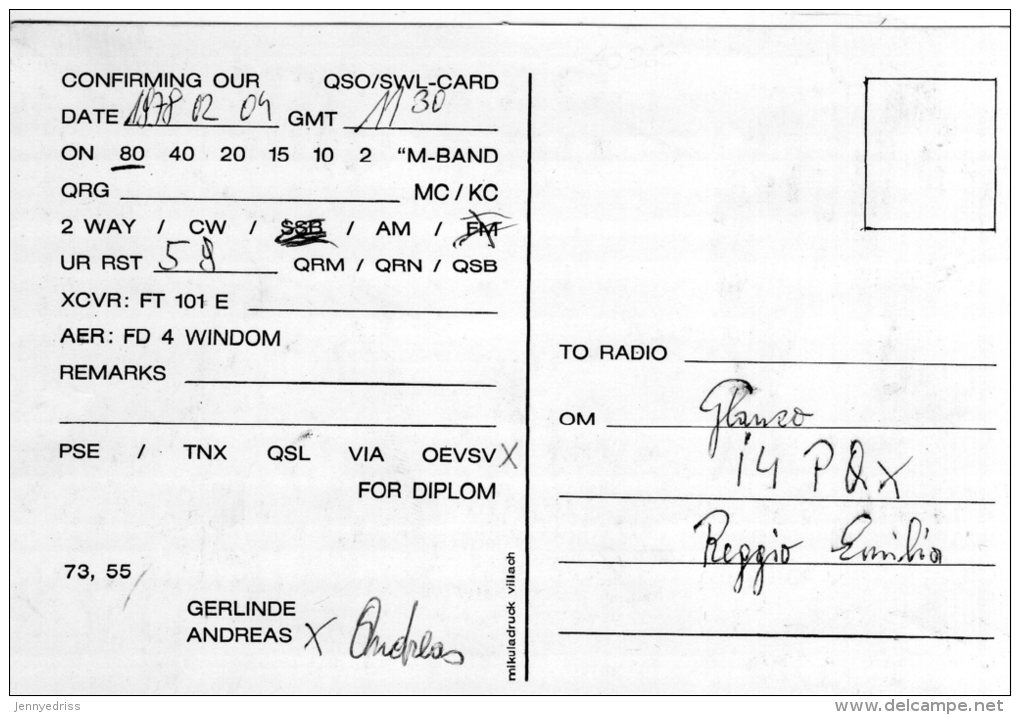 CONFIRMING OUR QSO/SWL-CARD
DATE 1978 02 04 GMT 11 30
ON 80 40 20 15 10 2 "M-BAND
QRG MC / KC
2 WAY / CW / SSB / AM / FM
UR RST 5 9 QRM / QRN / QSB
XCVR: FT 101 E
AER: FD 4 WINDOM
REMARKS
PSE / TNX QSL VIA OEVSV X
FOR DIPLOM
73, 55
GERLINDE
ANDREAS X Andreas
mikuladruck villach
TO RADIO
OM Glauco
i4 PQX
Reggio Emilia
jennyedriss
www.delcampe.net